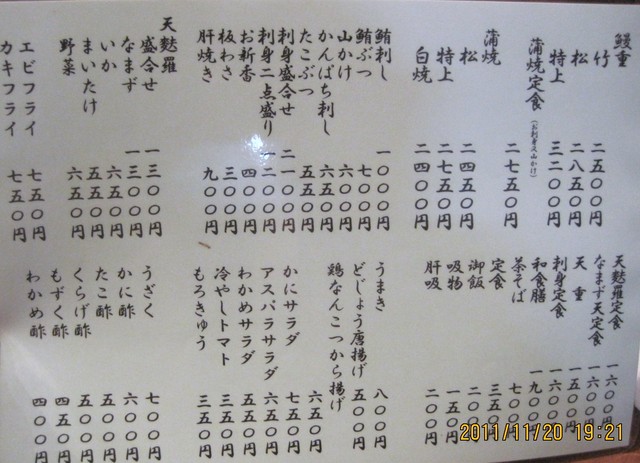 鰻重
竹 二五〇〇円
松 二八五〇円
特上 三二〇〇円
蒲焼定食(お刺身又山かけ) 二七五〇円
蒲焼
松 二四五〇円
特上 二七五〇円
白焼 二四〇〇円
鮪刺し 一〇〇〇円
鮪ぶつ 七〇〇円
山かけ 六〇〇円
かんぱち刺し 六五〇円
たこぶつ 五五〇円
刺身盛合せ 二一〇〇円
刺身二点盛り 一二〇〇円
お新香 四〇〇円
板わさ 三〇〇円
肝焼き 九〇〇円
天麩羅
盛合せ 一三〇〇円
なまず 一三〇〇円
いか 六五〇円
まいたけ 五五〇円
野菜 六五〇円
エビフライ 七五〇円
カキフライ 七五〇円
天麩羅定食 一六〇〇円
なまず天定食 一六〇〇円
天重 一五〇〇円
刺身定食 一六〇〇円
和食膳 一九〇〇円
茶そば 七〇〇円
定食 三五〇円
御飯 二〇〇円
吸物 一五〇円
肝吸 二〇〇円
うまき 八〇〇円
どじょう唐揚げ 五〇〇円
鶏なんこつから揚げ 六五〇円
かにサラダ 七五〇円
アスパラサラダ 六五〇円
わかめサラダ 五五〇円
冷やしトマト 三五〇円
もろきゅう 三五〇円
うざく 七〇〇円
かに酢 六〇〇円
たこ酢 五〇〇円
くらげ酢 五〇〇円
もずく酢 四五〇円
わかめ酢 四〇〇円
2011/11/20 19:21